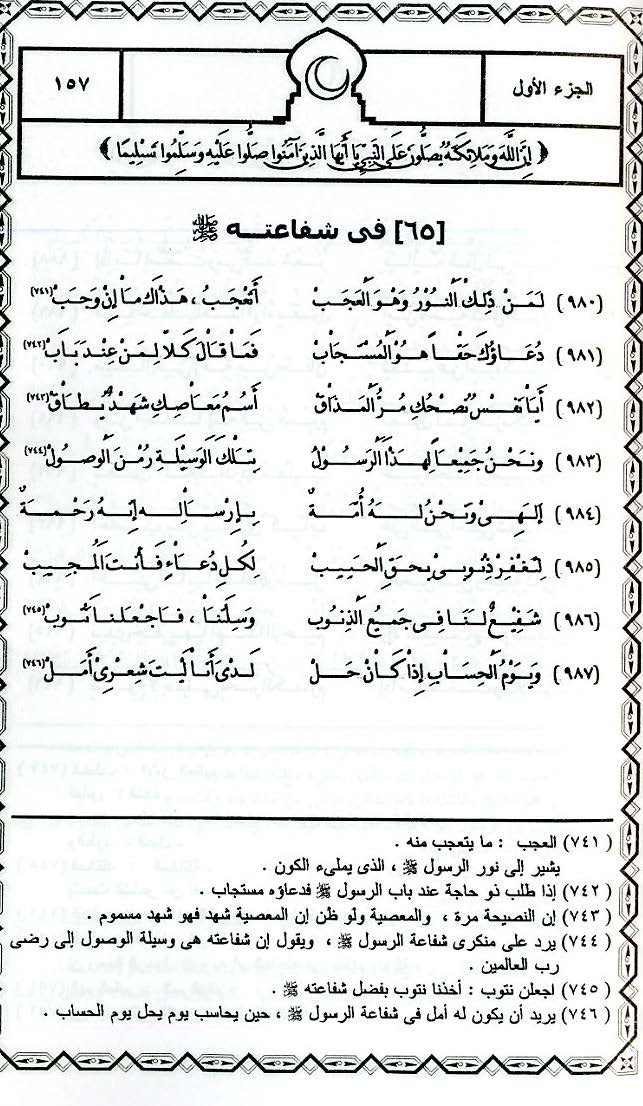 الجزء الأول
١٥٧
﴿ إِنَّ اللَّهَ وَمَلَائِكَتَهُ يُصَلُّونَ عَلَى النَّبِيِّ يَا أَيُّهَا الَّذِينَ آمَنُوا صَلُّوا عَلَيْهِ وَسَلِّمُوا تَسْلِيمًا ﴾
[٦٥] فى شفاعته ﷺ
(٩٨٠) لَمَنْ ذَلِكَ النُّوْرُ وَهُوَ الْعَجَبْ أَتَعْجَبُ ، هَذَاكَ مَا إِنْ وَجَبْ (٧٤١)
(٩٨١) دُعَاؤُكَ حَقًّا هُوَ الْمُسْتَجَابْ فَمَا قَالَ كَلَّا لِمَنْ عِنْدَ بَابْ (٧٤٢)
(٩٨٢) أَيَا نَفْسُ نُصْحُكِ مُرُّ الْمَذَاقْ أَسُمُّ مَعَاصِكِ شَهْدٌ يُطَاقْ (٧٤٣)
(٩٨٣) وَنَحْنُ جَمِيعًا لِهَذَا الرَّسُوْلْ بِتِلْكَ الْوَسِيْلَةِ رُمْنَ الْوُصُولْ (٧٤٤)
(٩٨٤) إِلَهِىْ وَنَحْنُ لَهُ أُمَّةٌ بِإِرْسَالِهِ إِنَّهُ رَحْمَةٌ
(٩٨٥) لِتَغْفِرْ ذُنُوبِىْ بِحَقِّ الْحَبِيبْ لِكُلِّ دُعَاءٍ فَأَنْتَ الْمُجِيبْ
(٩٨٦) شَفِيْعٌ لَنَا فِى جَمِيْعِ الذُّنُوبْ وَسِيلَتُنَا ، فَاجْعَلَنَّا نَتُوبْ (٧٤٥)
(٩٨٧) وَيَوْمُ الْحِسَابِ إِذَا كَانَ حَلْ لَدَى أَنَا لَيْتَ شِعْرِىْ أَمَلْ (٧٤٦)
(٧٤١) العجب : ما يتعجب منه .
يشير إلى نور الرسول ﷺ ، الذى يملىء الكون .
(٧٤٢) إذا طلب ذو حاجة عند باب الرسول ﷺ فدعاؤه مستجاب .
(٧٤٣) إن النصيحة مرة ، والمعصية ولو ظن إن المعصية شهد فهو شهد مسموم .
(٧٤٤) يرد على منكرى شفاعة الرسول ﷺ ، ويقول إن شفاعته هى وسيلة الوصول إلى رضى
رب العالمين .
(٧٤٥) اجعلن نتوب : أخذنا نتوب بفضل شفاعته ﷺ .
(٧٤٦) يريد أن يكون له أمل فى شفاعة الرسول ﷺ ، حين يحاسب يوم يحل يوم الحساب .